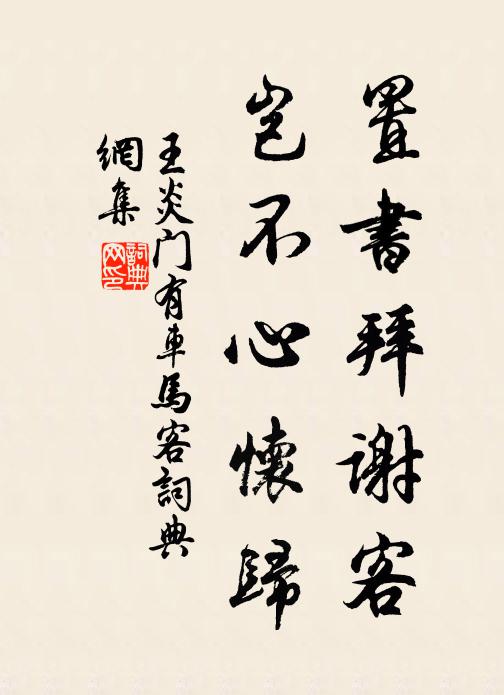 置書拜謝客
豈不心懷歸
王炎門有車馬客詞典
網集
詞典网印